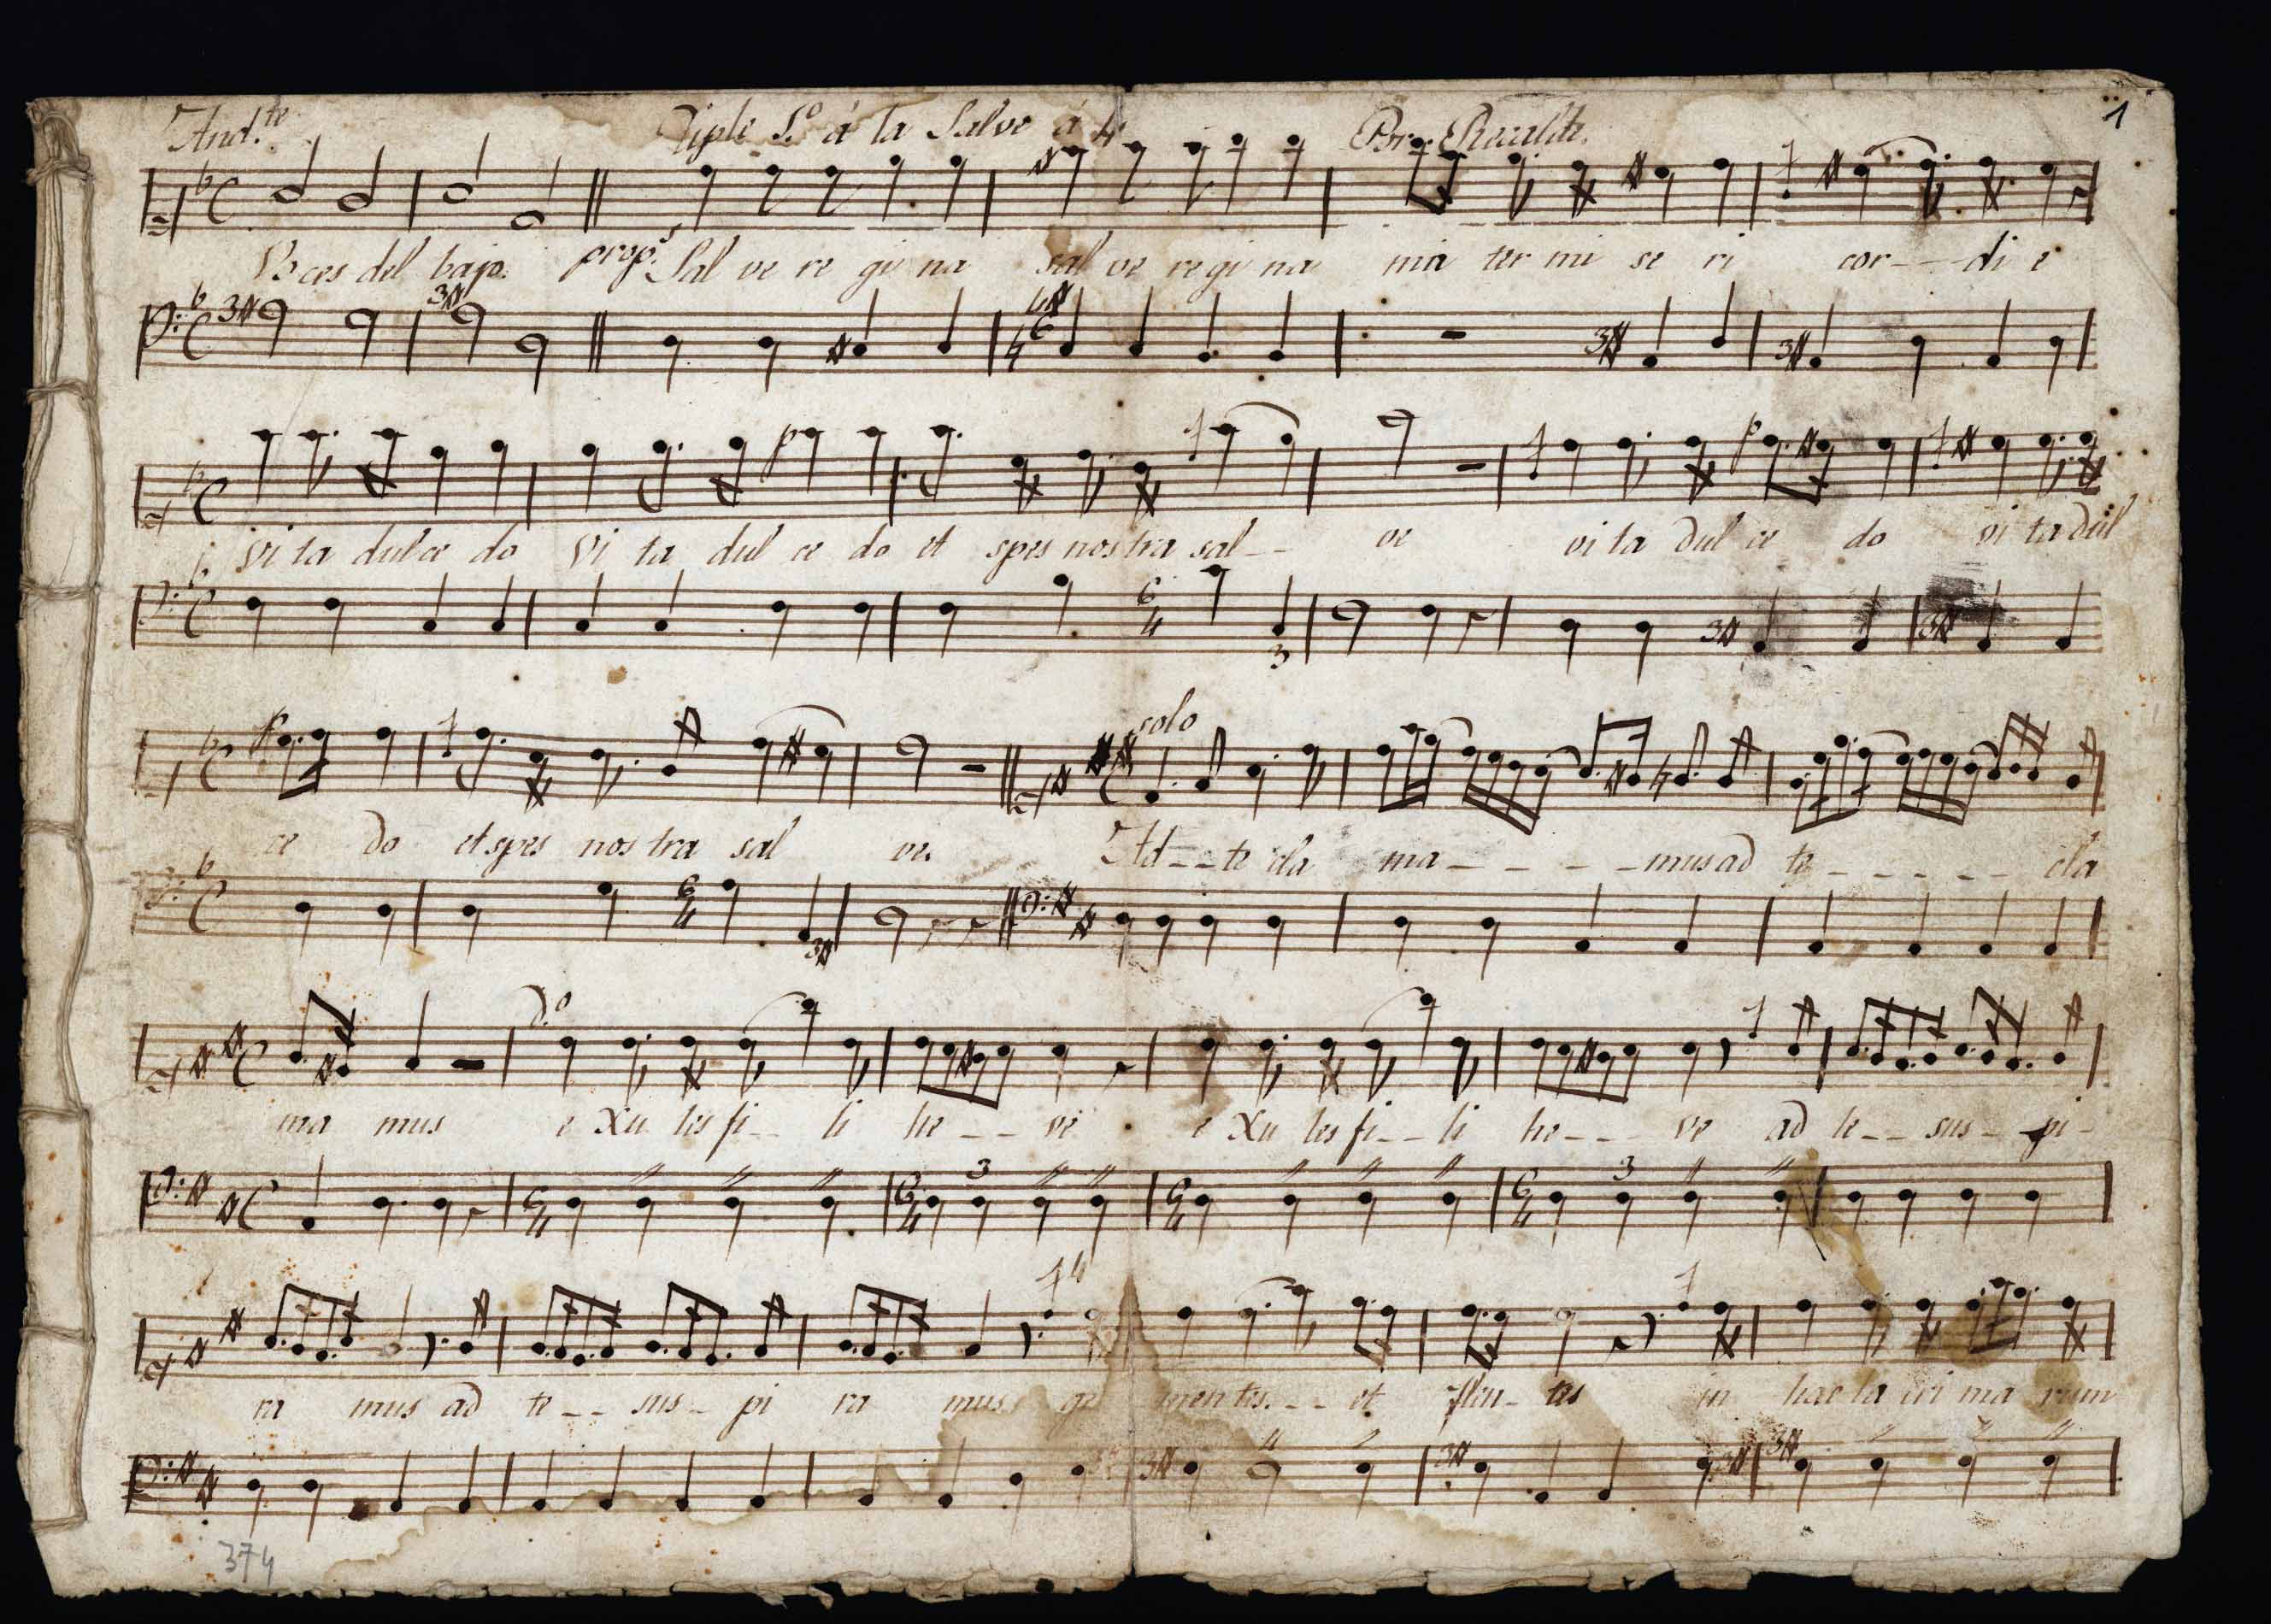 And.te Tiple 1.o á la Salve á 4 Por Recalde. 1
Voces del bajo. prop.s Sal ve re gi na sal ve re gi na ma ter mi se ri cor - - - di e
vi ta dul ce do vi ta dul ce do et spes nos tra sal - - ve vi ta dul ce do vi ta dul
solo
ce do et spes nos tra sal ve. Ad - - te cla ma - - - - - mus ad te - - - - - - cla
D.o
ma mus e Xu les fi - - li he - - - ve e Xu les fi - - - li he - - - - ve ad te - - - sus - - pi -
ra mus ad te - - - sus - pi ra mus ge men tes. - - - et flen - tes in hac la cri ma rum
374